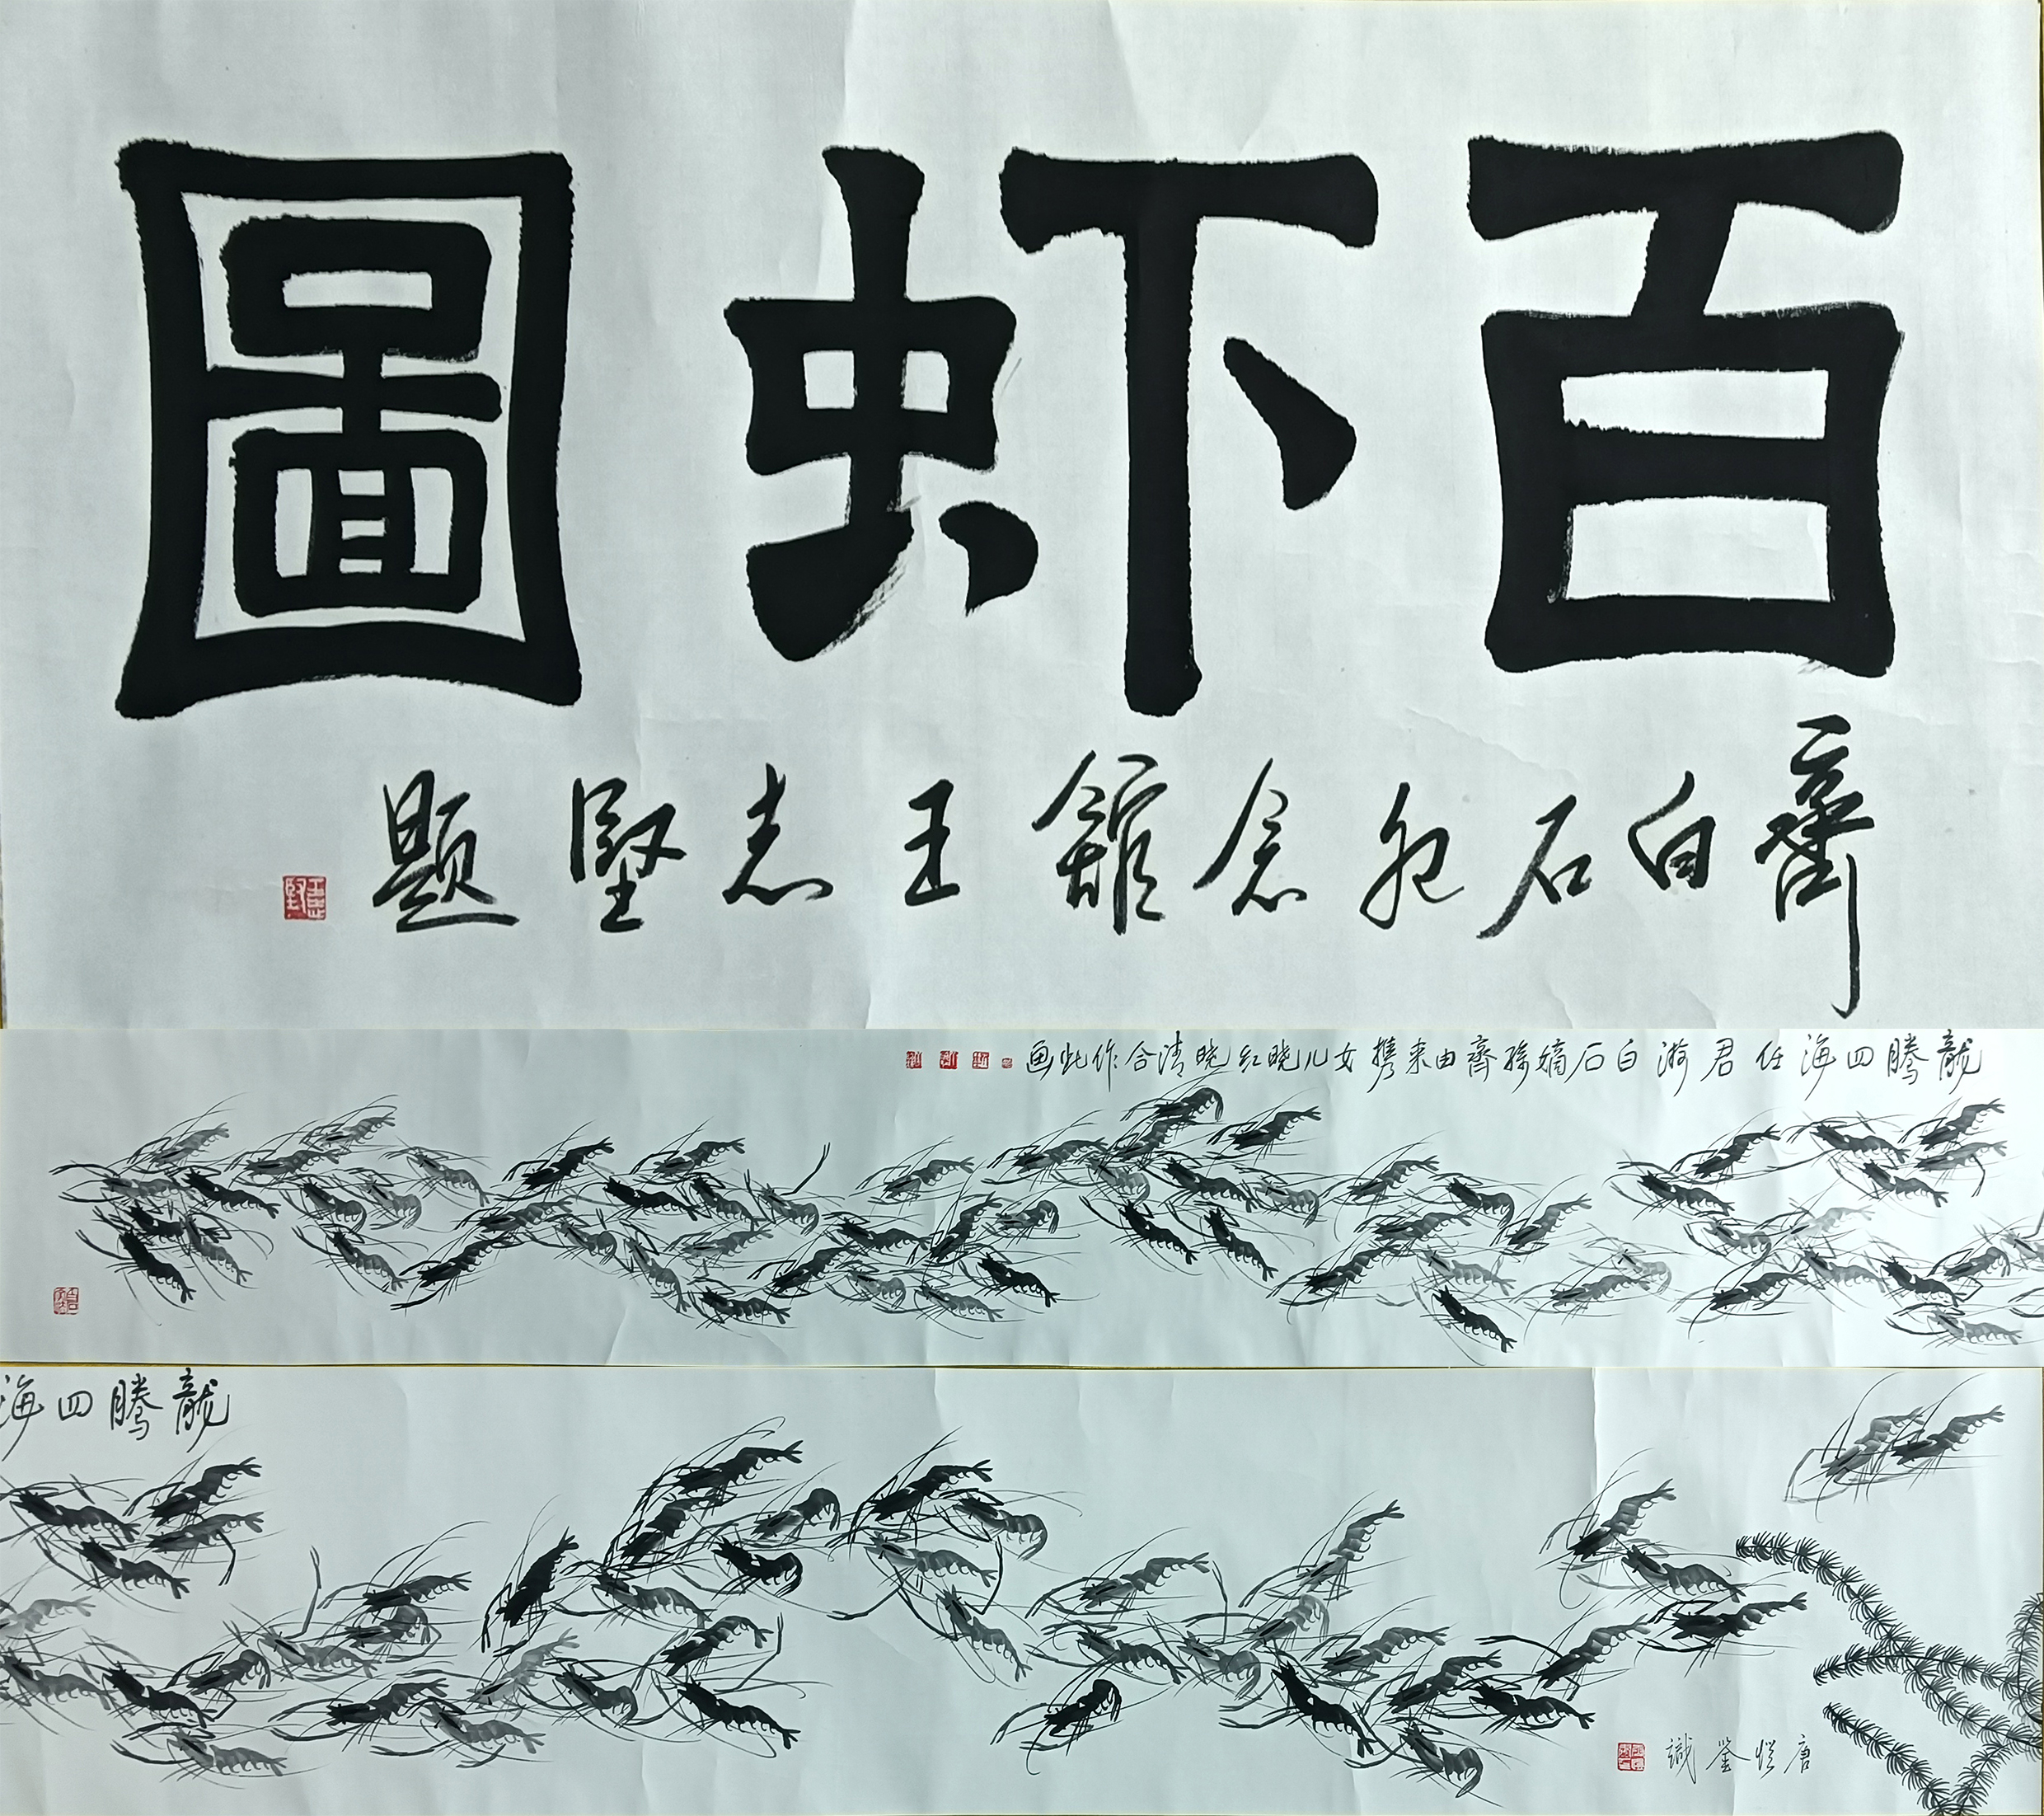 百虾圖
齊白石纪念舘王志堅题
王志堅
龍騰四海任君游白石嫡孫齊由来携女儿晓红晓清合作此画
龍騰四海
唐鉴識